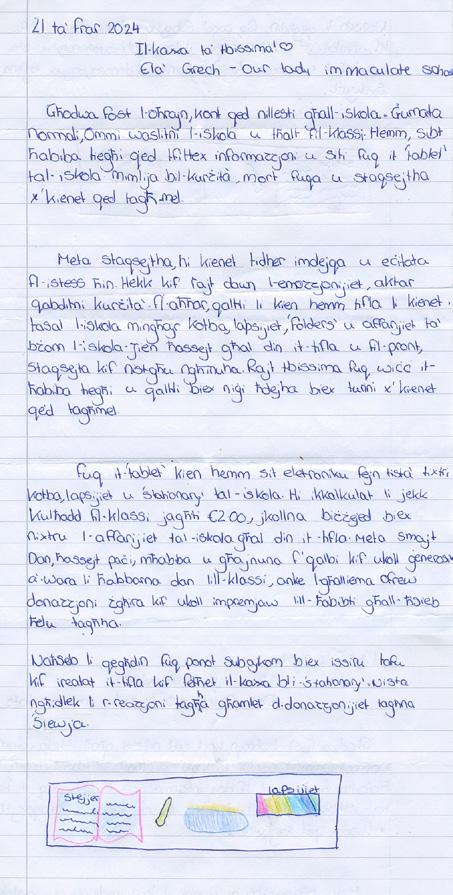 21 ta' Frar 2024
Il-kaxxa ta' tbissima! ♡
Ela Grech - Our lady immaculate
Għodwa fost l-oħrajn, kont qed nillesti għall-iskola. Ġurnata
normali, Ommi waslitni l-iskola u tlajt fil-klassi. Hemm, sibt
ħabiba tiegħi qed tfittex informazzjoni u siti fuq it 'tablet'
tal-iskola mimlija bil-kurżità, mort fuqa u staqsejtha
x'kienet qed tagħmel.
Meta staqsejtha, hi kienet tidher imdejqa u eċitata
fl-istess ħin. Hekk kif rajt dawn l-emozzjonijiet, aktar
qabditni kurżità. fl-aħħar, qaltli li kien hemm tifla li kienet
tasal l-iskola mingħajr kotba, lapsijiet, 'folders' u affarijiet ta'
bżonn l-iskola. Jien ħassejt għal din it-tifla u fil-pront,
staqsejta kif nistgħu ngħinuha. Rajt tbissima fuq wiċċ it-
ħabiba tiegħi u qaltli biex niġi ħdejha biex turini x'kienet
qe'd tagħmel.
Fuq it-'tablet' kien hemm sit eletroniku fejn tista' tixtri
kotba, lapsijiet u 'stationary' tal-iskola. Hi kkalkulat li jekk
kulħadd fil-klassi jagħti €2.00, jkollna biżżejjed biex
nixtru l-affarijiet tal-iskola għal din it-tifla. Meta smajt
Dan, ħassejt paċi, mħabba u għajnuna f'qalbi kif ukoll
a' wara li ħabbarna dan lill-klassi, anke l-għalliema ofrew
donazzjoni żgħira kif ukoll impremjaw lill-ħabibti għall-ħsieb
tagħha.
Naħseb li qegħdin fuq ponot subgħajkom biex issiru tafu
kif irealat it-tifla kif fetħet il-kaxxa bli-'stationary'. Nista
ngħidlek li r-reazzjoni tagħha għamlet d-donazzjonijiet tagħna
siewja.
Stejjer
lapsijiet